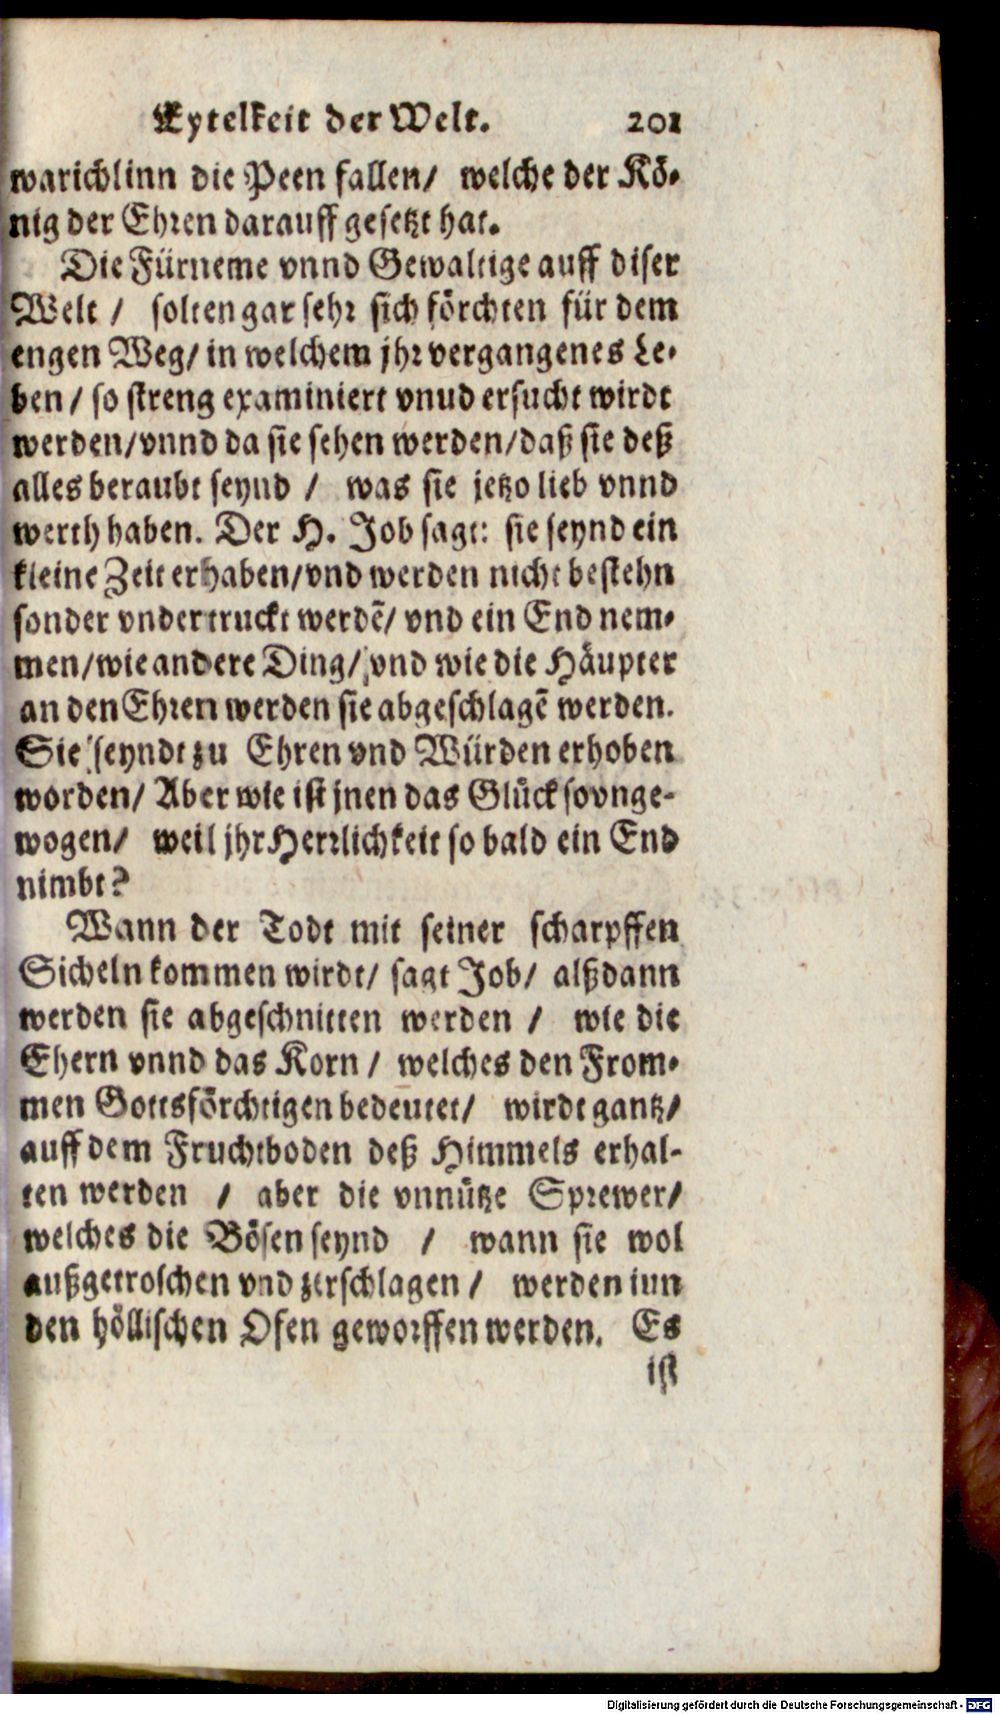 Eytelkeit der Welt. 201
warichlinn die Peen fallen/ welche der Kö-
nig der Ehren darauff gesetzt hat.
Die Fürneme vnnd Gewaltige auff diser
Welt / solten gar sehr sich förchten für dem
engen Weg/ in welchem jhr vergangenes Le-
ben / so streng examiniert vnud ersucht wirdt
werden/vnnd da sie sehen werden/daß sie deß
alles beraubt seynd / was sie jetzo lieb vnnd
werth haben. Der H. Job sagt: sie seynd ein
kleine Zeit erhaben/vnd werden nicht bestehn
sonder vndertruckt werdē/ vnd ein End nem-
men/wie andere Ding/ vnd wie die Häupter
an den Ehren werden sie abgeschlagē werden.
Sie seyndt zu Ehren vnd Würden erhoben
worden/ Aber wie ist jnen das Glück so vnge-
wogen/ weil jhr Herrlichkeit so bald ein End
nimbt?
Wann der Todt mit seiner scharpffen
Sicheln kommen wirdt/ sagt Job/ alßdann
werden sie abgeschnitten werden / wie die
Ehern vnnd das Korn / welches den From-
men Gottsförchtigen bedeutet/ wirdt gantz/
auff dem Fruchtboden deß Himmels erhal-
ten werden / aber die vnnütze Sprewer/
welches die Bösen seynd / wann sie wol
außgetroschen vnd zerschlagen / werden inn
den höllischen Ofen geworffen werden. Es
ist
Digitalisierung gefördert durch die Deutsche Forschungsgemeinschaft - DFG